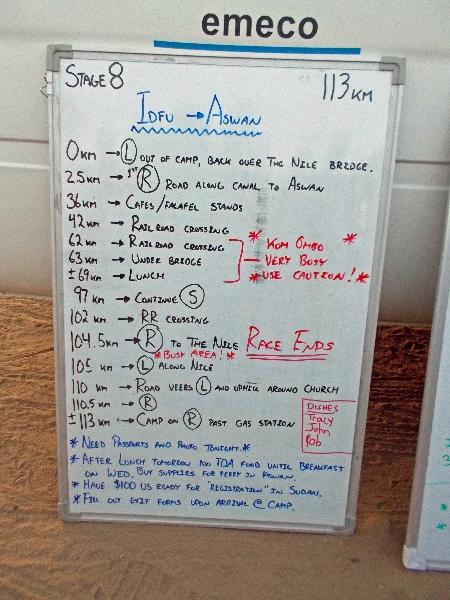 emeco
STAGE 8
113 KM
IDFU → ASWAN
0 KM → L OUT OF CAMP, BACK OVER THE NILE BRIDGE.
2.5 KM → 1ST R ROAD ALONG CANAL TO ASWAN
36 KM → CAFES/FALAFEL STANDS
42 KM → RAILROAD CROSSING
62 KM → RAILROAD CROSSING
63 KM → UNDER BRIDGE
± 69 KM → LUNCH
* KOM OMBO *
- VERY BUSY
* USE CAUTION! *
97 KM → CONTINUE S
102 KM → RR CROSSING
104.5 KM → R TO THE NILE RACE ENDS
* BUSY AREA! *
105 KM → L ALONG NILE
110 KM → ROAD VEERS L AND UPHILL AROUND CHURCH
110.5 KM → R
± 113 KM → CAMP ON R PAST GAS STATION
DISHES
Tracy
John
Rob
* NEED PASSPORTS AND PHOTO TONIGHT. *
* AFTER LUNCH TOMORROW NO TDA FOOD UNTIL BREAKFAST
ON WED. BUY SUPPLIES FOR FERRY IN ASWAN.
* HAVE $100 US READY FOR "REGISTRATION" IN SUDAN.
* FILL OUT EXIT FORMS UPON ARRIVAL @ CAMP.